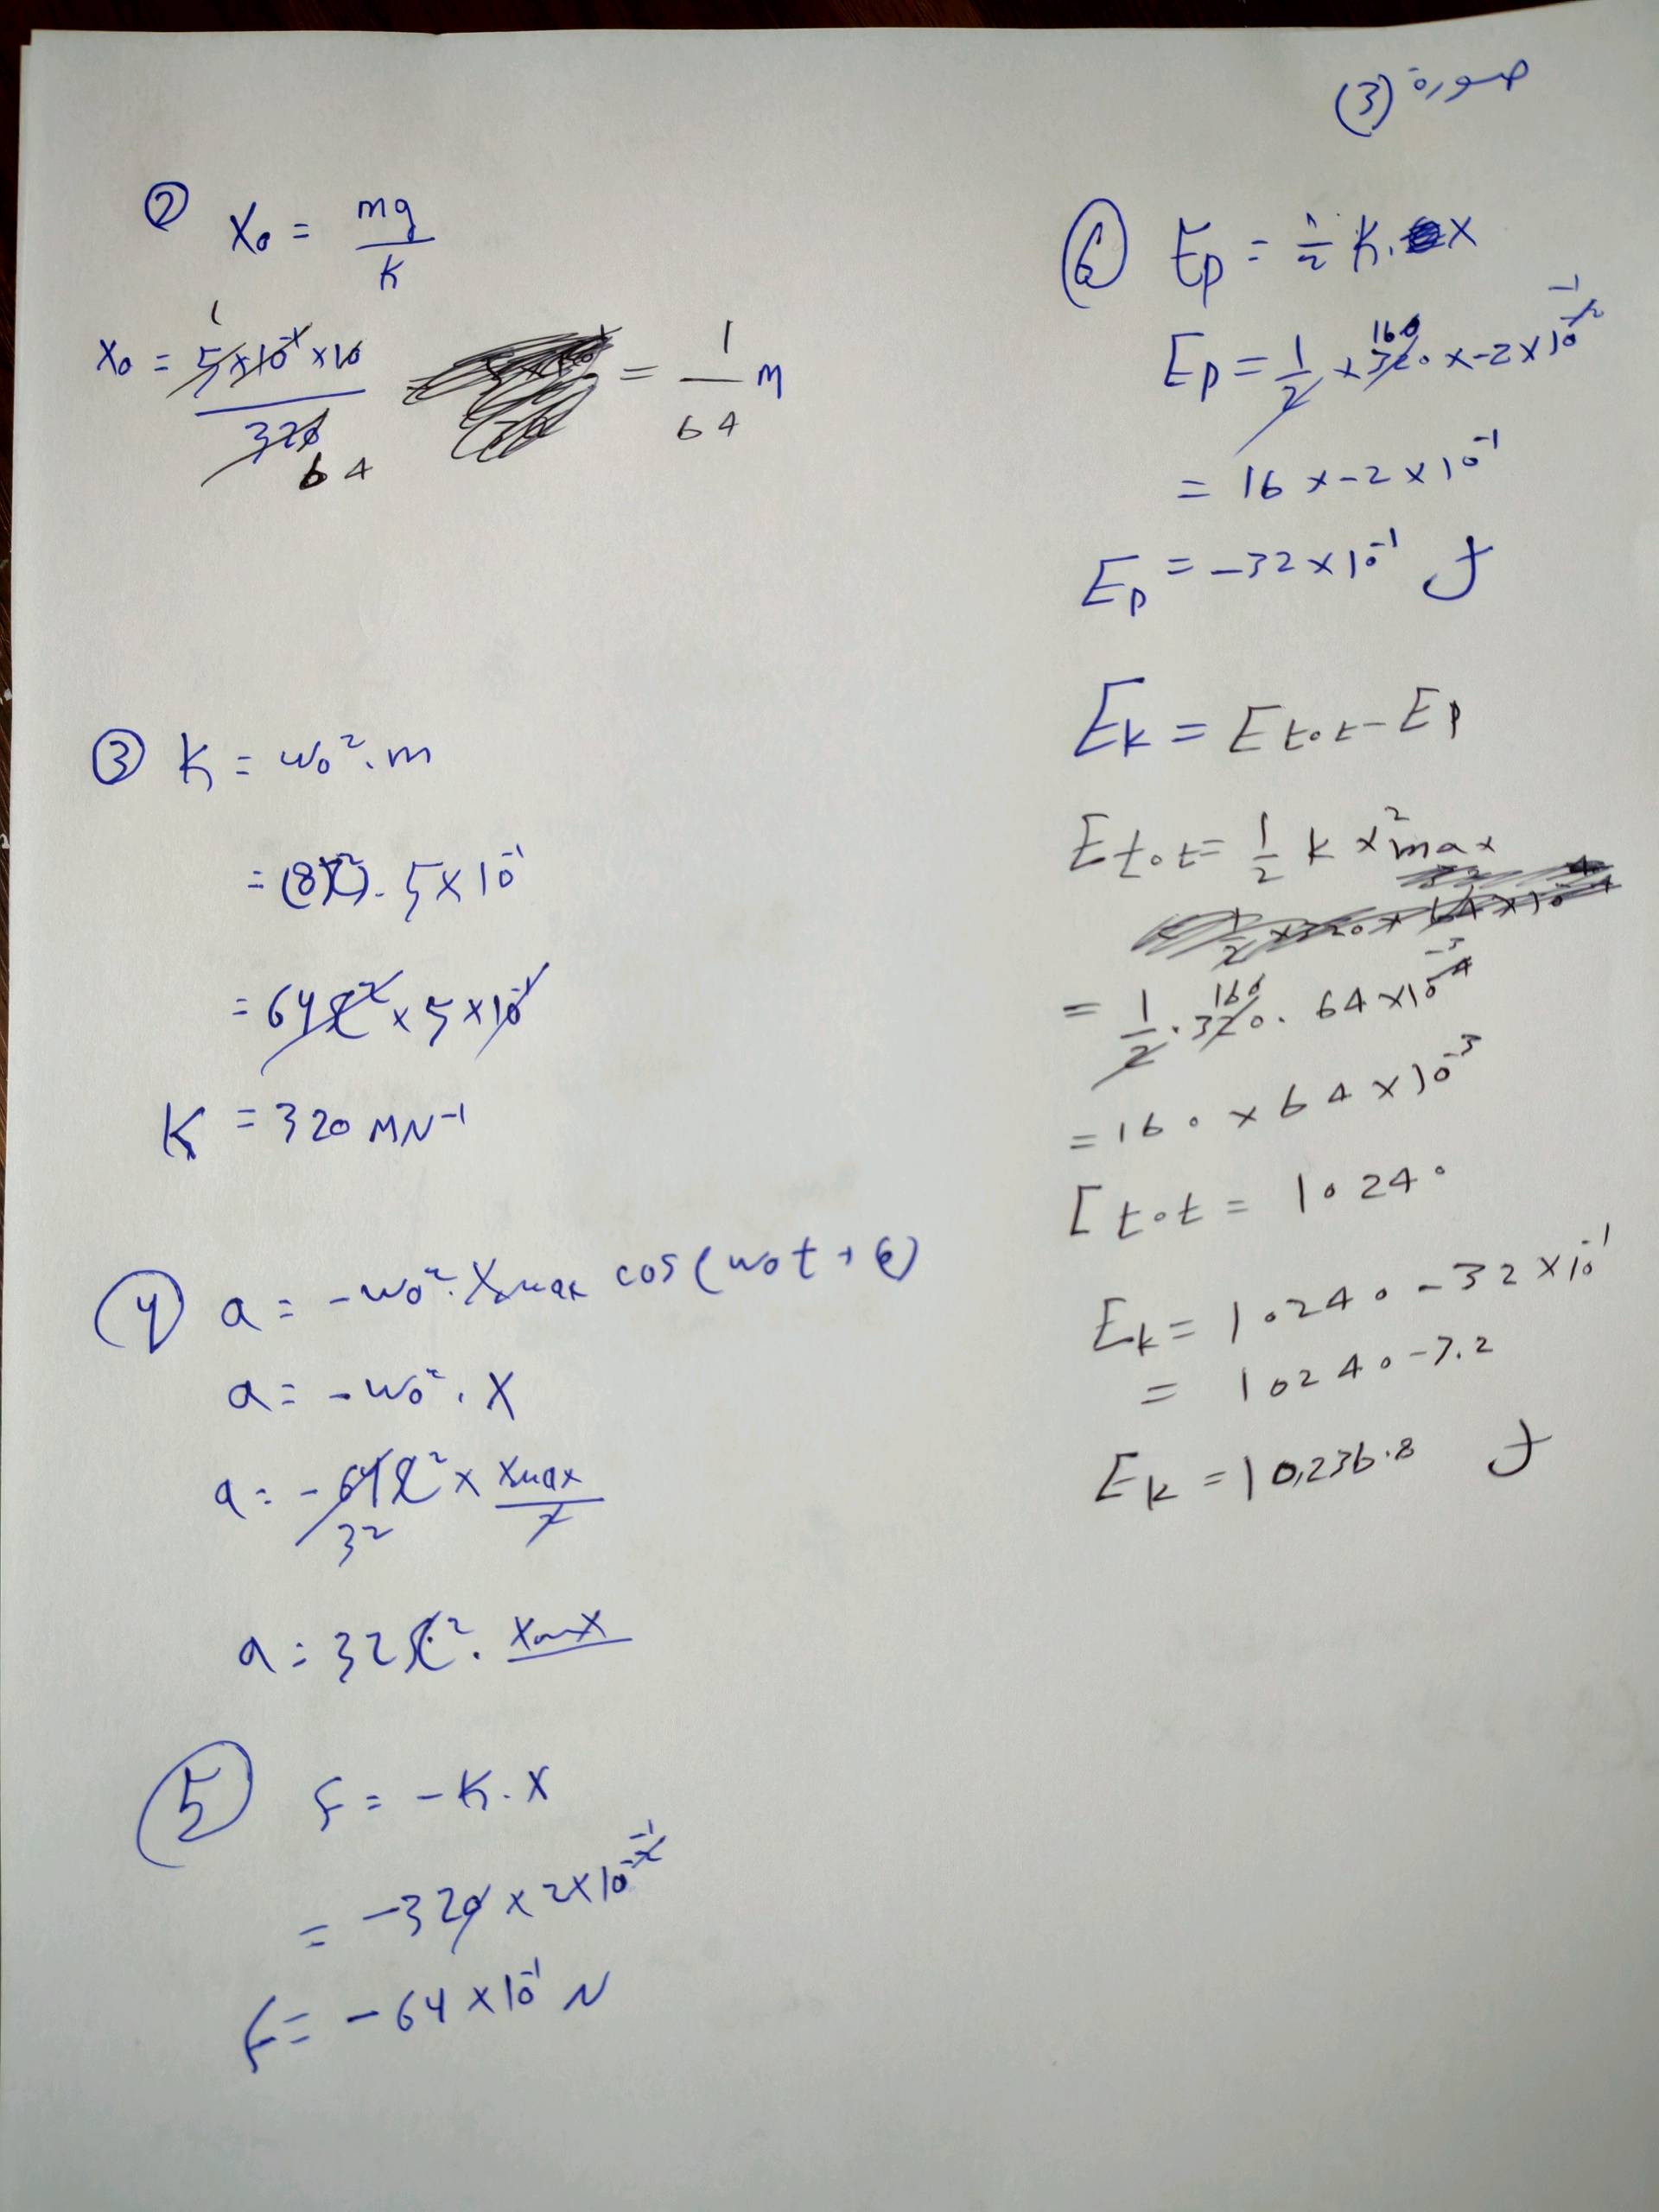 صورة (3)
② X₀ = mg/K
X₀ = 5×10⁻¹×10/320 = 1/64 m
1
64
③ K = ω₀².m
= (8π)². 5×10⁻¹
= 64π² × 5×10⁻¹
K = 320 MN⁻¹
④ a = -ω₀². Xmax cos(ω₀t + φ)
a = -ω₀². X
a = -64π² × Xmax/2
32
a = 32π². Xmax
⑤ F = -K.X
= -320 × 2×10⁻² ⁻¹
F = -64×10⁻¹ N
⑥ Ep = 1/2 K. X
Ep = 1/2 × 320 × -2×10⁻² ⁻¹
160
= 16 × -2 × 10⁻¹
Ep = -32×10⁻¹ J
Ek = Etot - Ep
Etot = 1/2 k x²max
= 1/2 . 320 . 64×10⁻⁴ ⁻³
160
= 160 × 64 × 10⁻³
Etot = 10240
Ek = 10240 - 32×10⁻¹
= 10240 - 3.2
Ek = 10,236.8 J